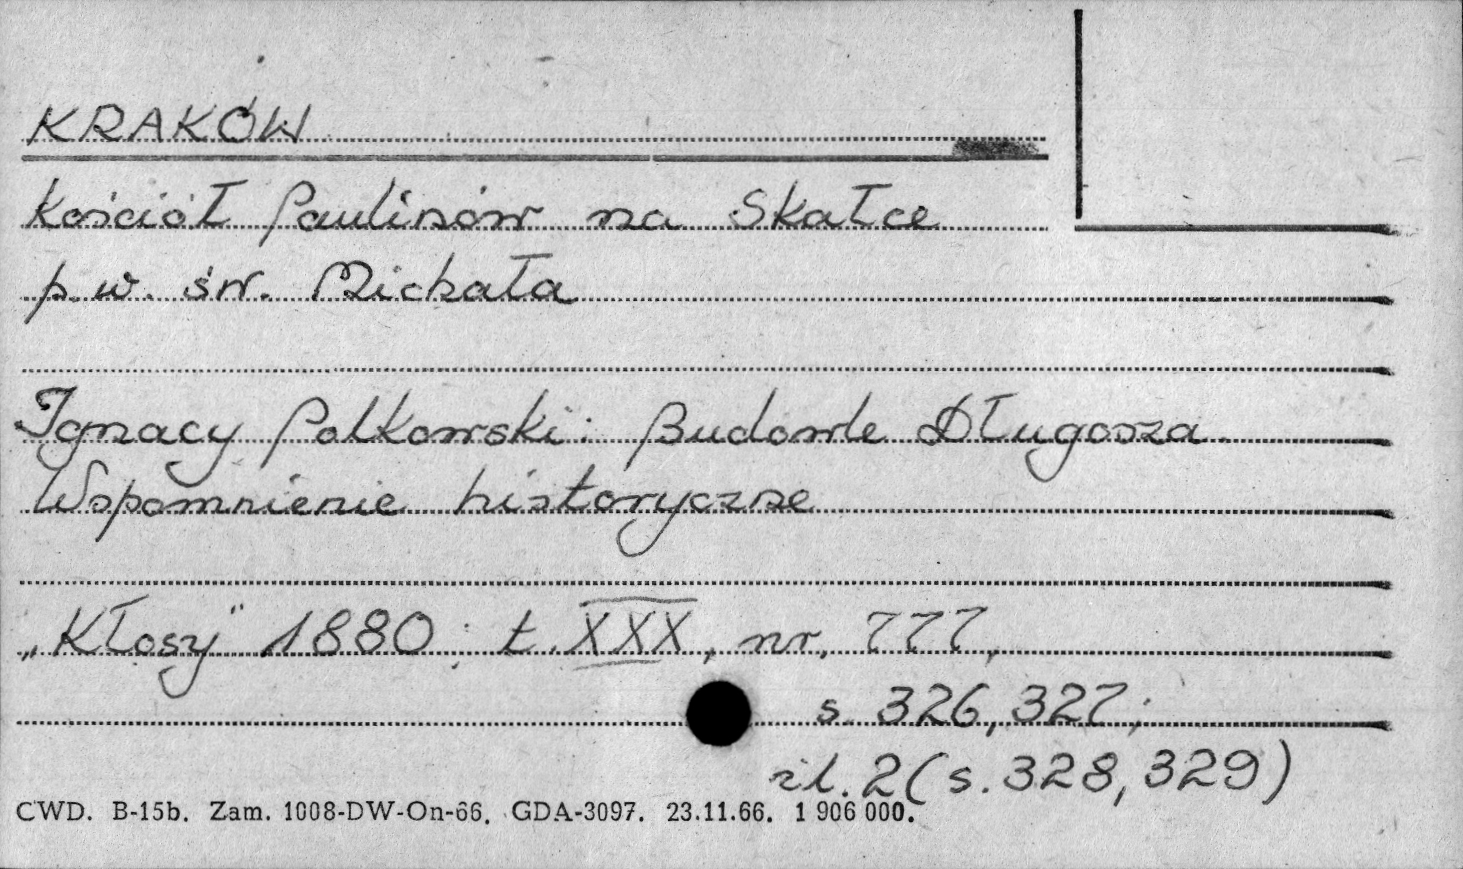 KRAKÓW
Kościół Paulinów na Skałce
p.w. św. Michała
Ignacy Polkowski: Budowle Długosza
Wspomnienie historyczne
„Kłosy" 1880; t. XXX, nr. 777,
s. 326, 327;
il. 2 (s. 328, 329)
CWD. B-15b. Zam. 1008-DW-On-66. GDA-3097. 23.11.66. 1 906 000.